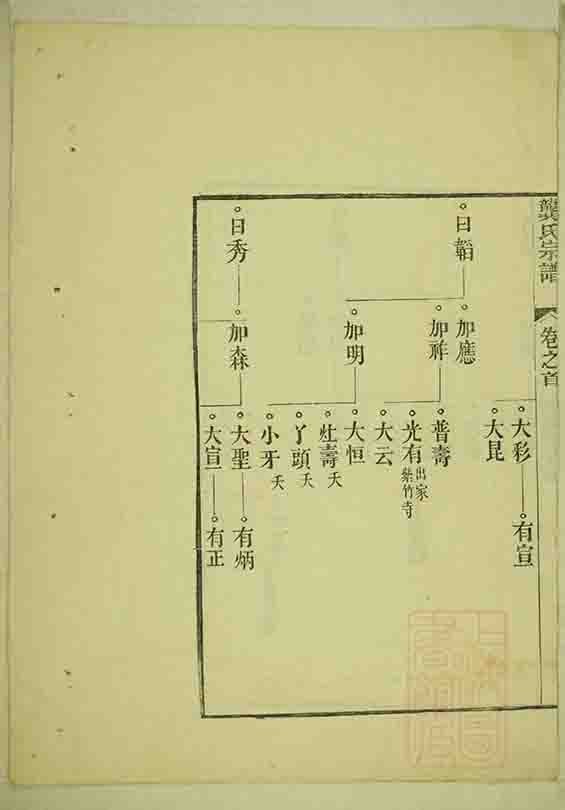 龔氏宗譜
卷之首
日韜
加應
加祥
加明
大彩
有宣
大昆
普壽
光有 出家紫竹寺
大云
大恒
灶壽 夭
丫頭 夭
小牙 夭
日秀
加森
大聖
有炳
大宣
有正